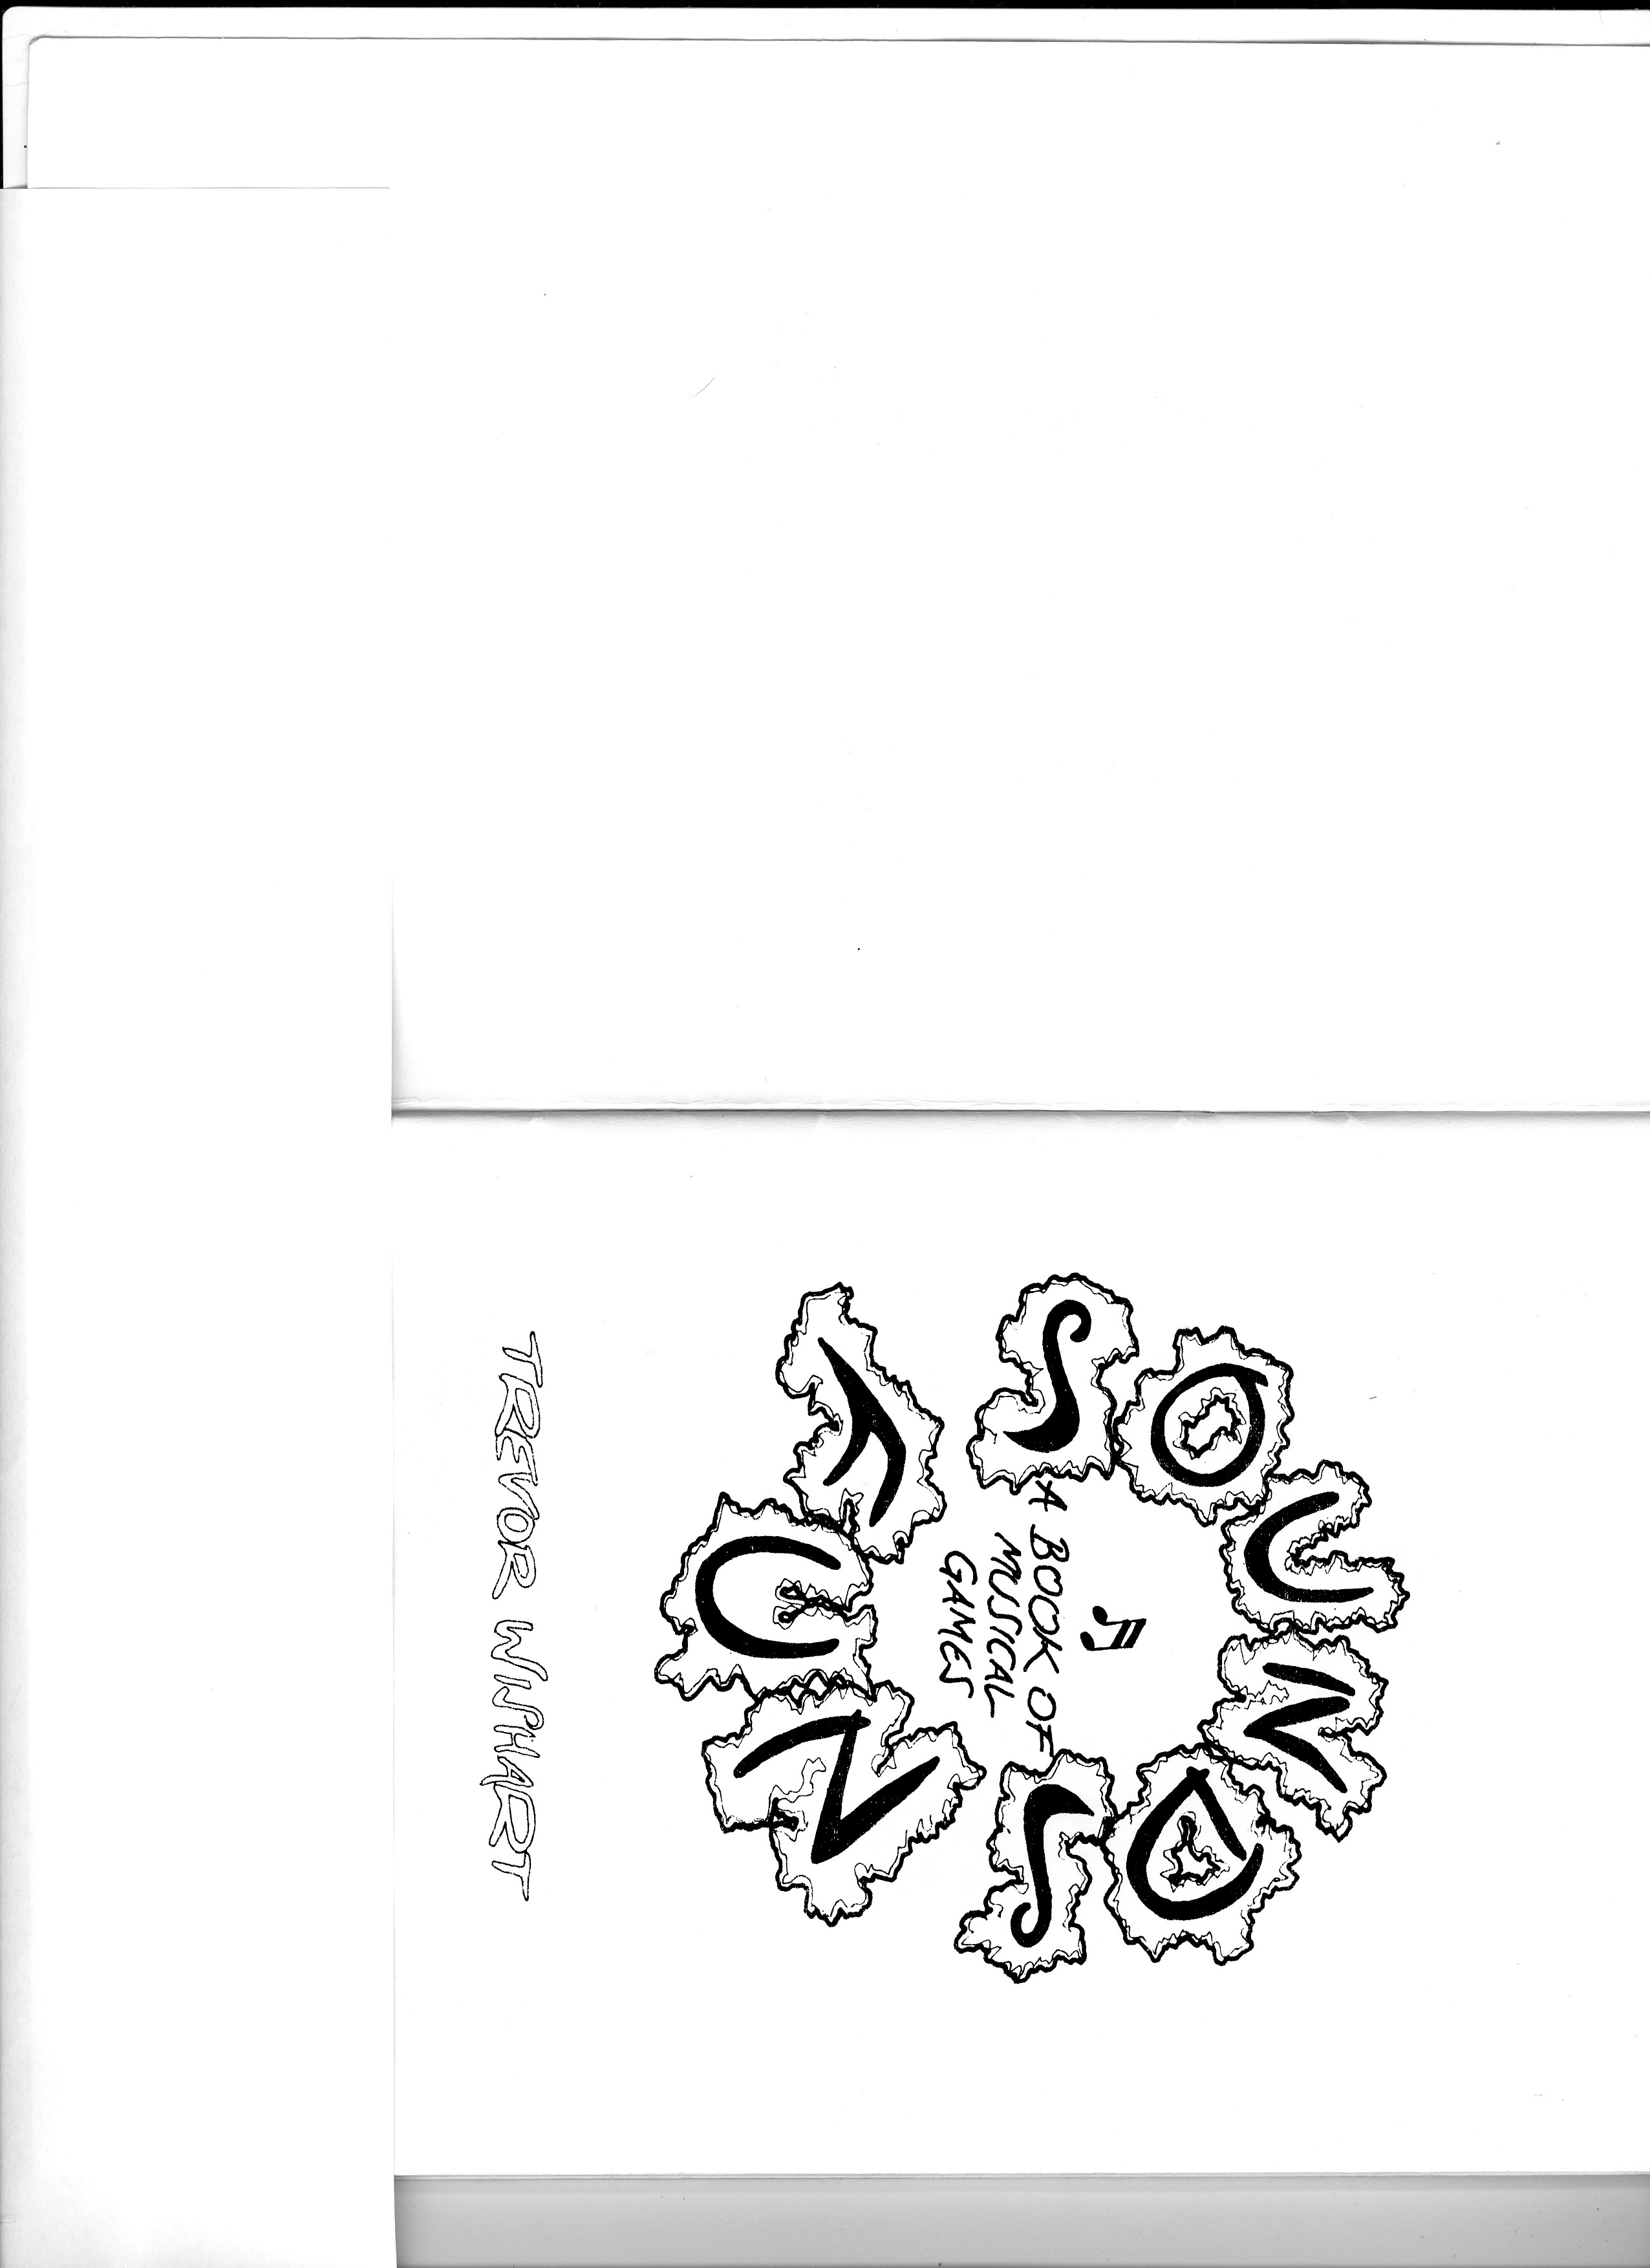 SOUNDS
A BOOK OF
MUSICAL
GAMES
FUN
TREVOR WISHART